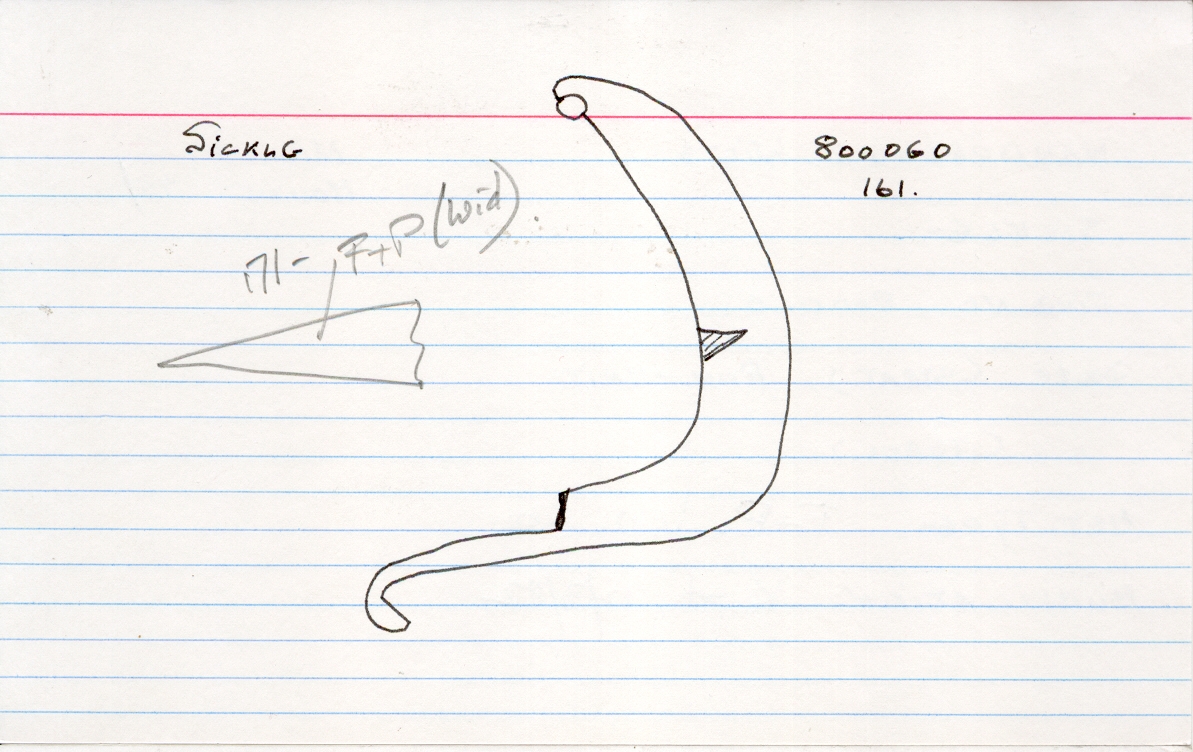 Sickle
800060
161.
F+P (wid).